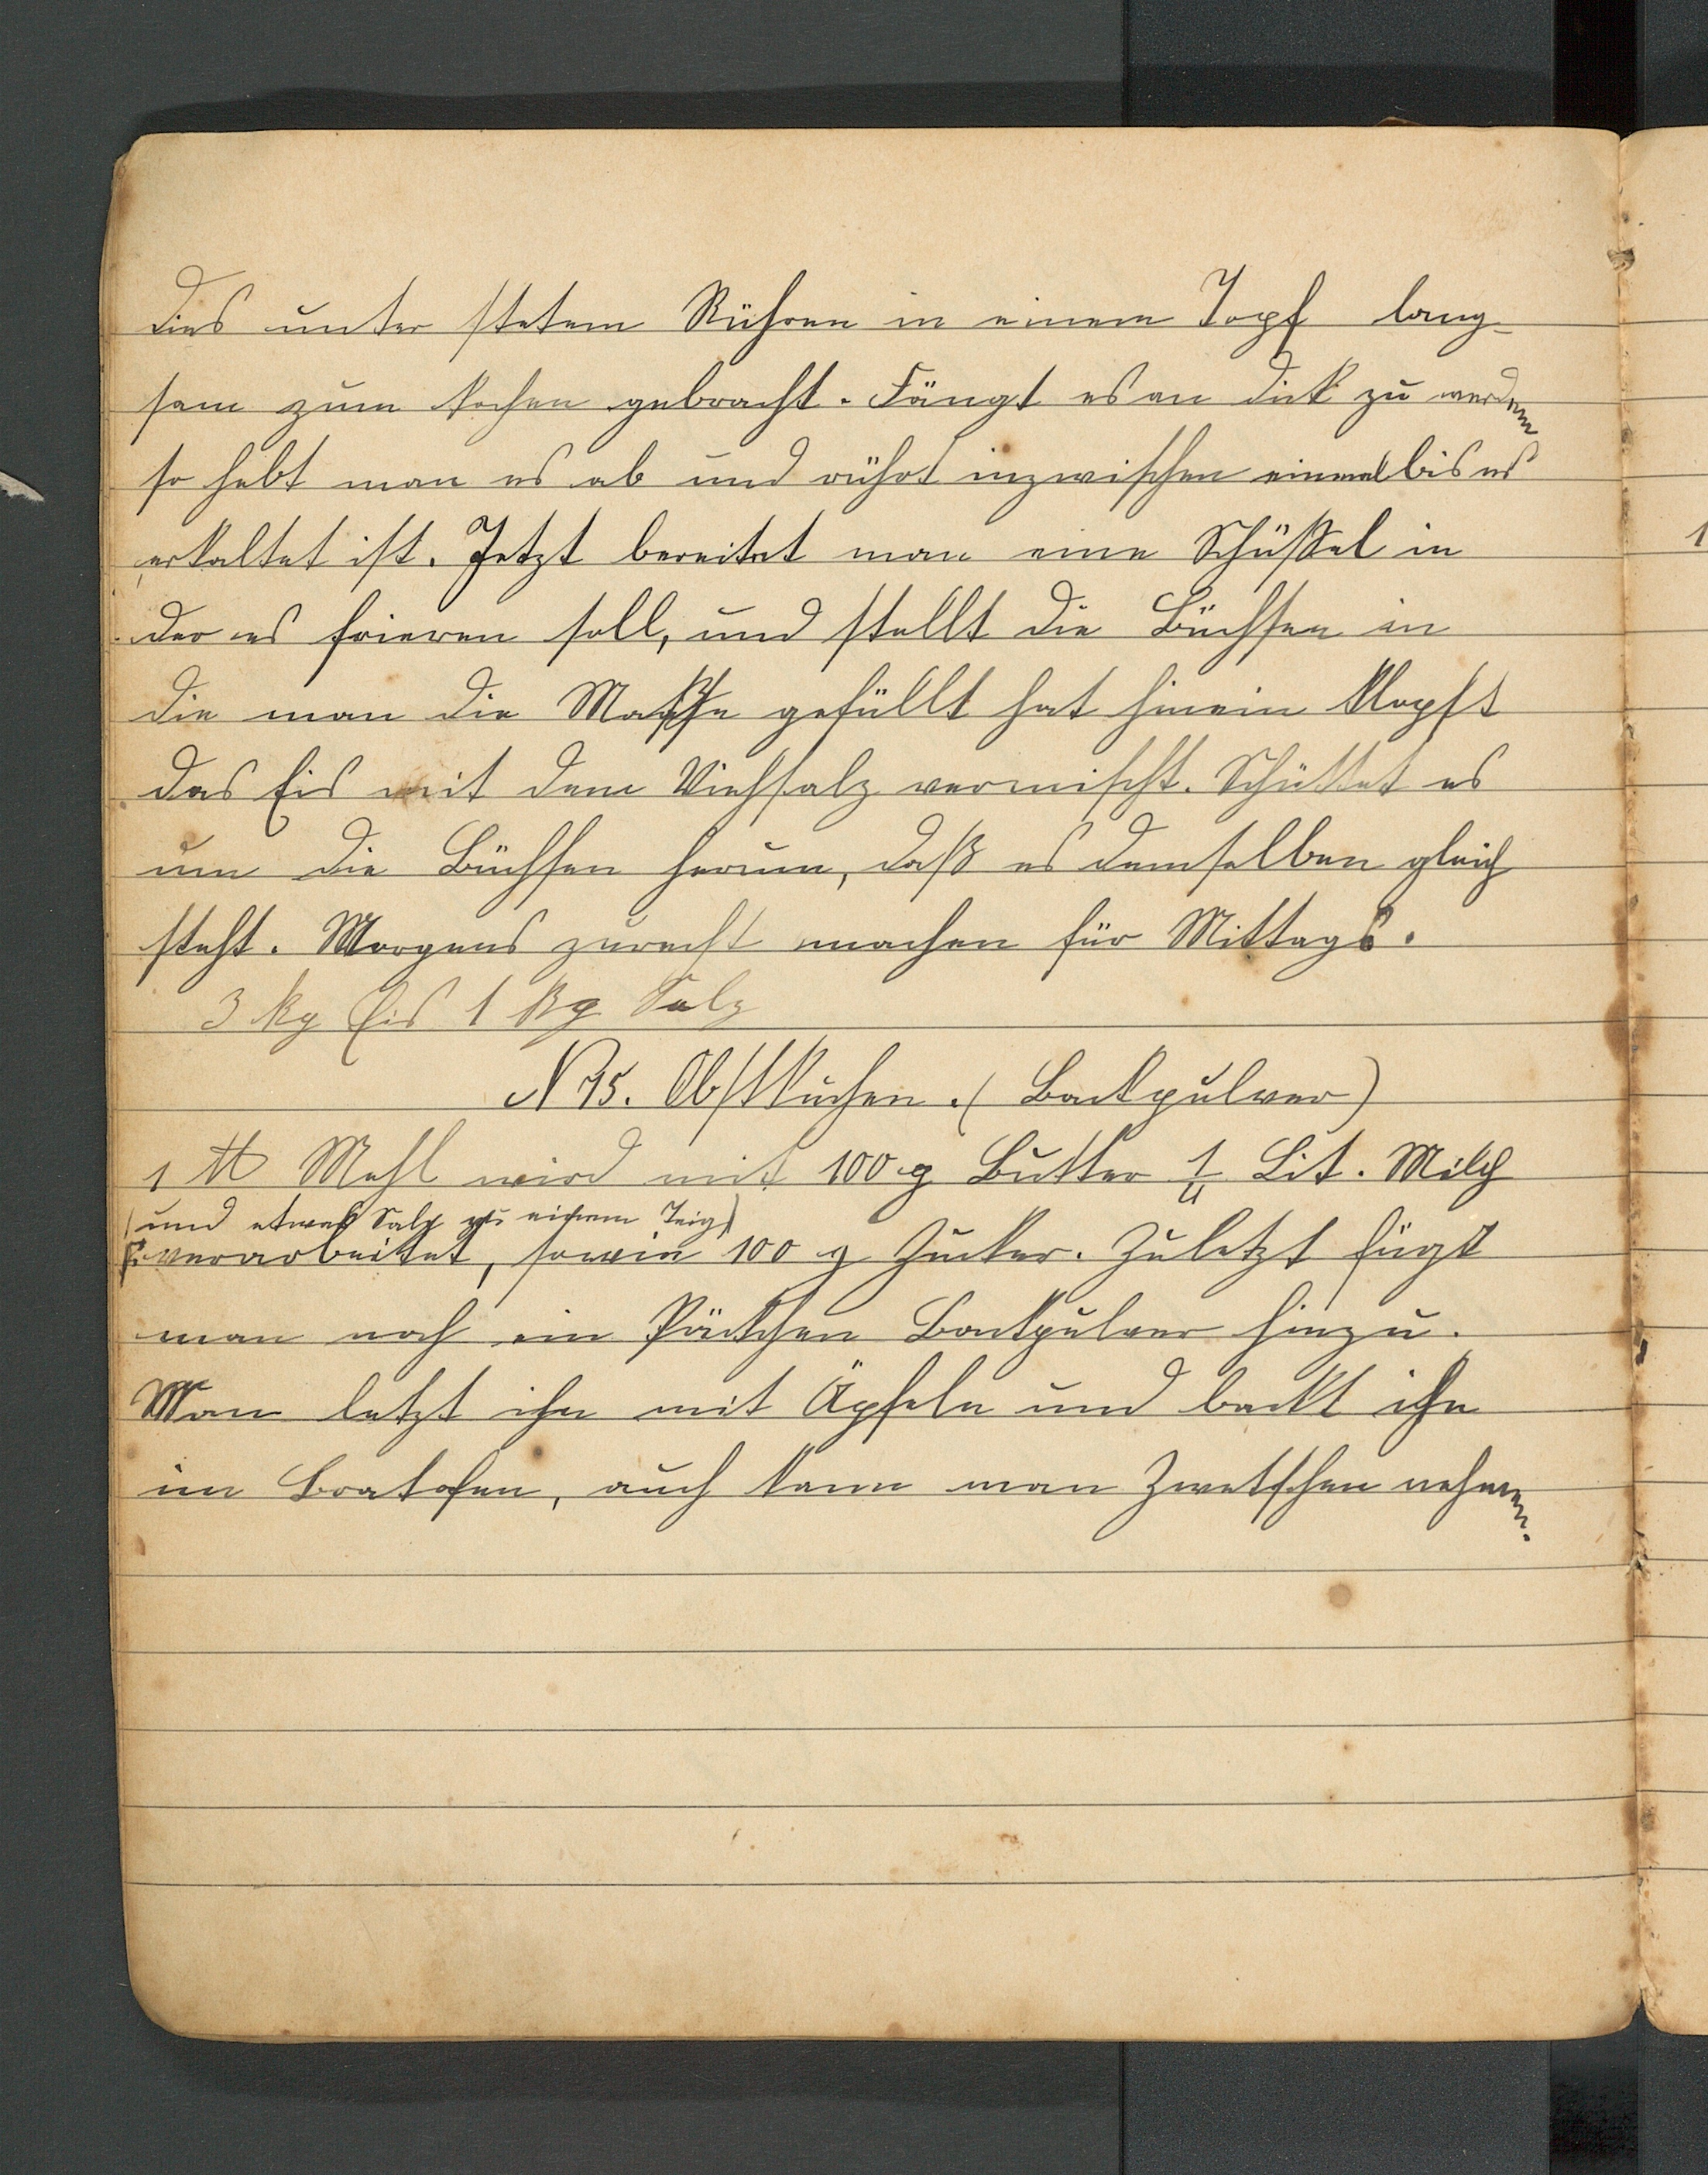 dies unter stetem Rühren in einem Topf lang-
sam zum kochen gebracht. Fängt es an dick zu werden
so hebt man es ab und rührt inzwischen einmal bis es
erkaltet ist. Jetzt bereitet man eine Schüssel in
der es frieren soll, und stellt die Büchsen in
die man die Masse gefüllt hat hinein klopft
das Eis mit dem Viehsalz vermischt. Schüttet es
um die Büchsen herum, daß es demselben gleich
steht. Morgens zurecht machen für Mittags.
3 kg Eis 1 kg Salz
N 75. Obstkuchen. (Backpulver)
1 ℔ Mehl wird mit 100 g Butter 1/4 Lit. Milch
(und etwas Salz zu einem Teig)
verarbeitet, sowie 100 g Zucker. Zuletzt fügt
man noch ein Päckchen Backpulver hinzu.
Man letzt ihn mit Äpfeln und backt ihn
im Bratofen, auch kann man Zwetschen nehmen.
1